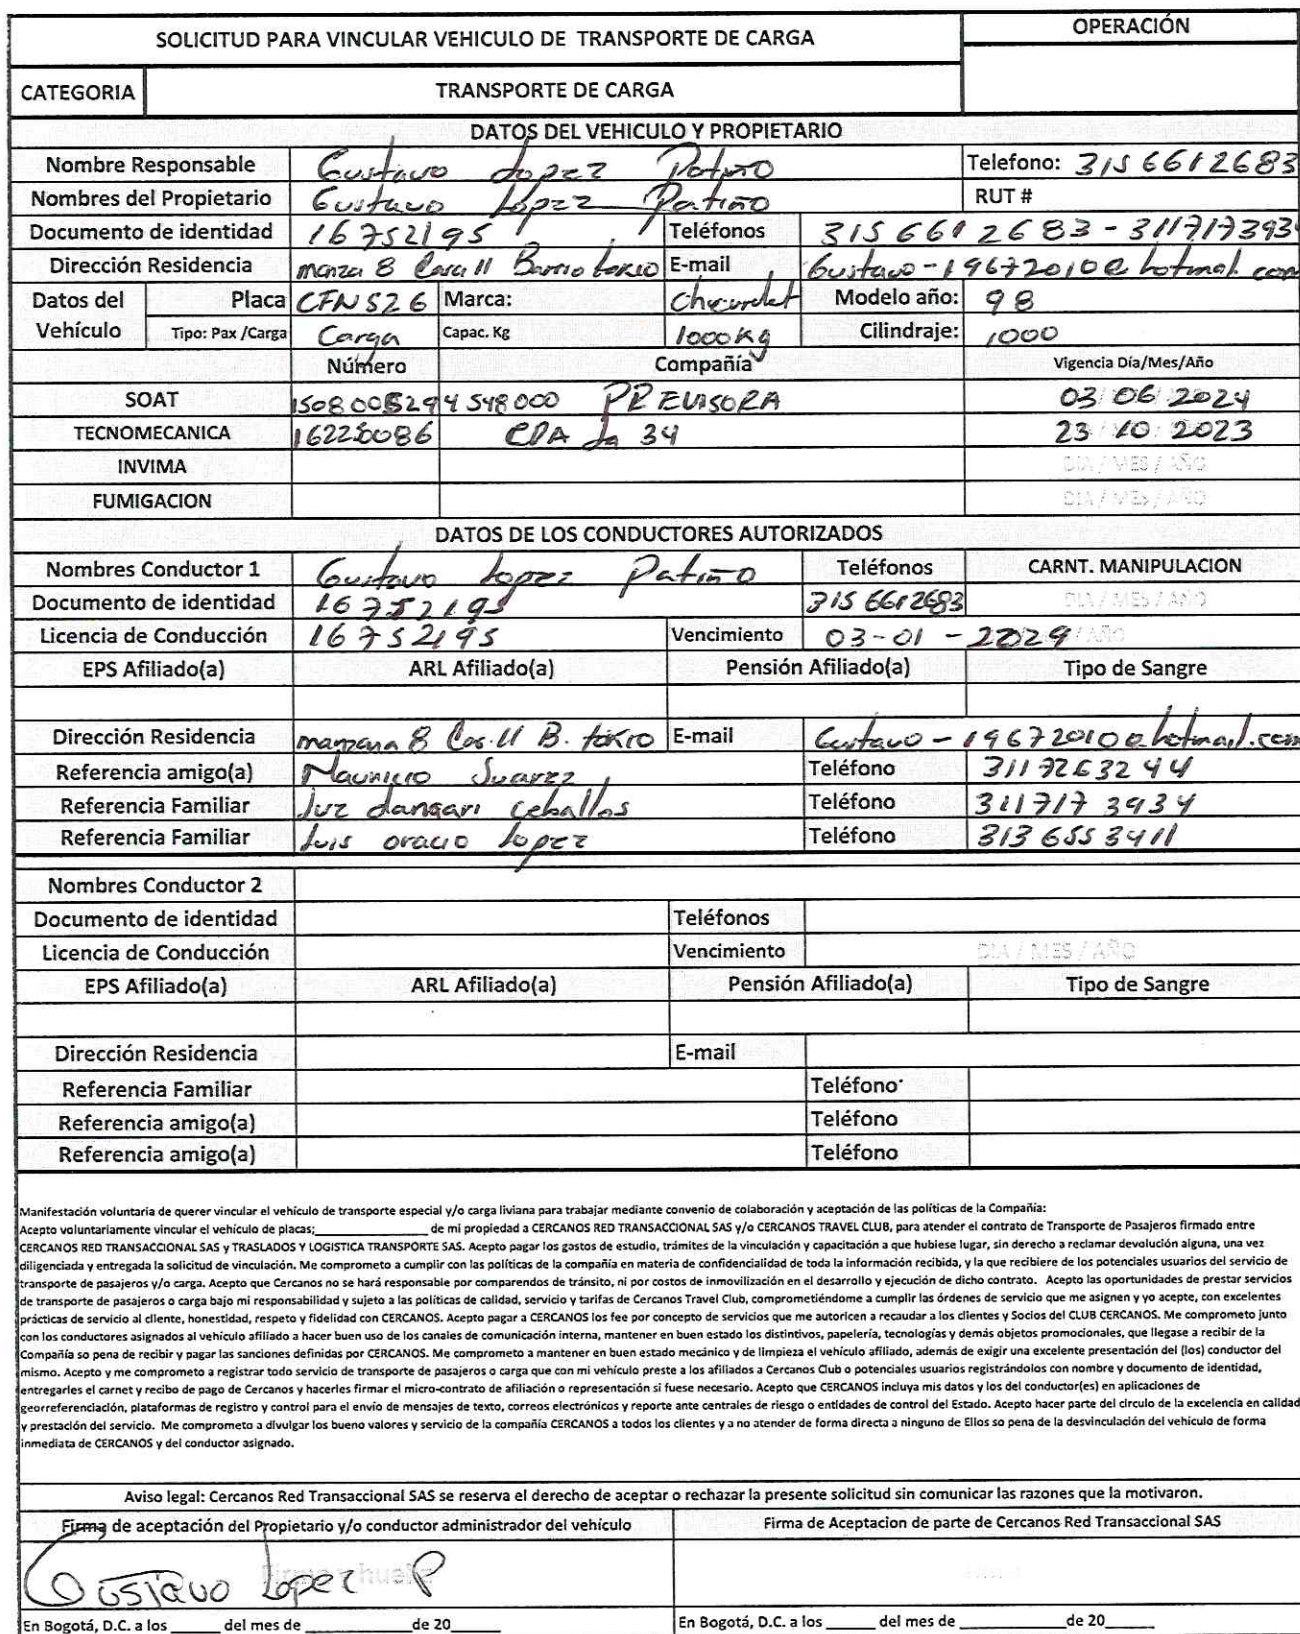 SOLICITUD PARA VINCULAR VEHICULO DE TRANSPORTE DE CARGA OPERACIÓN
CATEGORIA TRANSPORTE DE CARGA
DATOS DEL VEHICULO Y PROPIETARIO
Nombre Responsable Gustavo Lopez Patiño Telefono: 315 6612683
Nombres del Propietario Gustavo Lopez Patiño RUT #
Documento de identidad 16752195 Teléfonos 315 661 2683 - 311717393
Dirección Residencia manza 8 Casa 11 Barrio tokio E-mail Gustavo-19672010@hotmal.com
Datos del Vehículo Placa CFN526 Marca: Chevrolet Modelo año: 98
Tipo: Pax /Carga Carga Capac. Kg 1000 Kg Cilindraje: 1000
Número Compañía Vigencia Día/Mes/Año
SOAT PREVISORA 03 06 2024
TECNOMECANICA CDA la 34 23 10 2023
INVIMA DIA / MES / AÑO
FUMIGACION DIA / MES / AÑO
DATOS DE LOS CONDUCTORES AUTORIZADOS
Nombres Conductor 1 Gustavo Lopez Patiño Teléfonos CARNT. MANIPULACION
Documento de identidad 16752195 315 6612683 DIA / MES / AÑO
Licencia de Conducción 16752195 Vencimiento 03-01-2029
EPS Afiliado(a) ARL Afiliado(a) Pensión Afiliado(a) Tipo de Sangre
Dirección Residencia manzana 8 Cas. 11 B. tokio E-mail Gustavo-19672010@hotmail.com
Referencia amigo(a) Mauricio Suarez Teléfono 3117263244
Referencia Familiar luz dansari ceballos Teléfono 311717 3934
Referencia Familiar luis oracio lopez Teléfono 313 655 3411
Nombres Conductor 2
Documento de identidad Teléfonos
Licencia de Conducción Vencimiento DIA / MES / AÑO
EPS Afiliado(a) ARL Afiliado(a) Pensión Afiliado(a) Tipo de Sangre
Dirección Residencia E-mail
Referencia Familiar Teléfono
Referencia amigo(a) Teléfono
Referencia amigo(a) Teléfono
Manifestación voluntaria de querer vincular el vehículo de transporte especial y/o carga liviana para trabajar mediante convenio de colaboración y aceptación de las políticas de la Compañía:
Acepto voluntariamente vincular el vehículo de placas;_______________ de mi propiedad a CERCANOS RED TRANSACCIONAL SAS y/o CERCANOS TRAVEL CLUB, para atender el contrato de Transporte de Pasajeros firmado entre
CERCANOS RED TRANSACCIONAL SAS y TRASLADOS Y LOGISTICA TRANSPORTE SAS. Acepto pagar los gastos de estudio, trámites de la vinculación y capacitación a que hubiese lugar, sin derecho a reclamar devolución alguna, una vez
diligenciada y entregada la solicitud de vinculación. Me comprometo a cumplir con las políticas de la compañía en materia de confidencialidad de toda la información recibida, y la que recibiere de los potenciales usuarios del servicio de
transporte de pasajeros y/o carga. Acepto que Cercanos no se hará responsable por comparendos de tránsito, ni por costos de inmovilización en el desarrollo y ejecución de dicho contrato. Acepto las oportunidades de prestar servicios
de transporte de pasajeros o carga bajo mi responsabilidad y sujeto a las políticas de calidad, servicio y tarifas de Cercanos Travel Club, comprometiéndome a cumplir las órdenes de servicio que me asignen y yo acepte, con excelentes
prácticas de servicio al cliente, honestidad, respeto y fidelidad con CERCANOS. Acepto pagar a CERCANOS los fee por concepto de servicios que me autoricen a recaudar a los clientes y Socios del CLUB CERCANOS. Me comprometo junto
con los conductores asignados al vehículo afiliado a hacer buen uso de los canales de comunicación interna, mantener en buen estado los distintivos, papelería, tecnologías y demás objetos promocionales, que llegase a recibir de la
Compañía so pena de recibir y pagar las sanciones definidas por CERCANOS. Me comprometo a mantener en buen estado mecánico y de limpieza el vehículo afiliado, además de exigir una excelente presentación del (los) conductor del
mismo. Acepto y me comprometo a registrar todo servicio de transporte de pasajeros o carga que con mi vehículo preste a los afiliados a Cercanos Club o potenciales usuarios registrándolos con nombre y documento de identidad,
entregarles el carnet y recibo de pago de Cercanos y hacerles firmar el micro-contrato de afiliación o representación si fuese necesario. Acepto que CERCANOS incluya mis datos y los del conductor(es) en aplicaciones de
georreferenciación, plataformas de registro y control para el envío de mensajes de texto, correos electrónicos y reporte ante centrales de riesgo o entidades de control del Estado. Acepto hacer parte del circulo de la excelencia en calidad
y prestación del servicio. Me comprometo a divulgar los bueno valores y servicio de la compañía CERCANOS a todos los clientes y a no atender de forma directa a ninguno de Ellos so pena de la desvinculación del vehículo de forma
inmediata de CERCANOS y del conductor asignado.
Aviso legal: Cercanos Red Transaccional SAS se reserva el derecho de aceptar o rechazar la presente solicitud sin comunicar las razones que la motivaron.
Firma de aceptación del Propietario y/o conductor administrador del vehículo Firma de Aceptacion de parte de Cercanos Red Transaccional SAS
Gustavo Lopez P
En Bogotá, D.C. a los _____ del mes de ____________de 20_____ En Bogotá, D.C. a los _____ del mes de ____________de 20_____